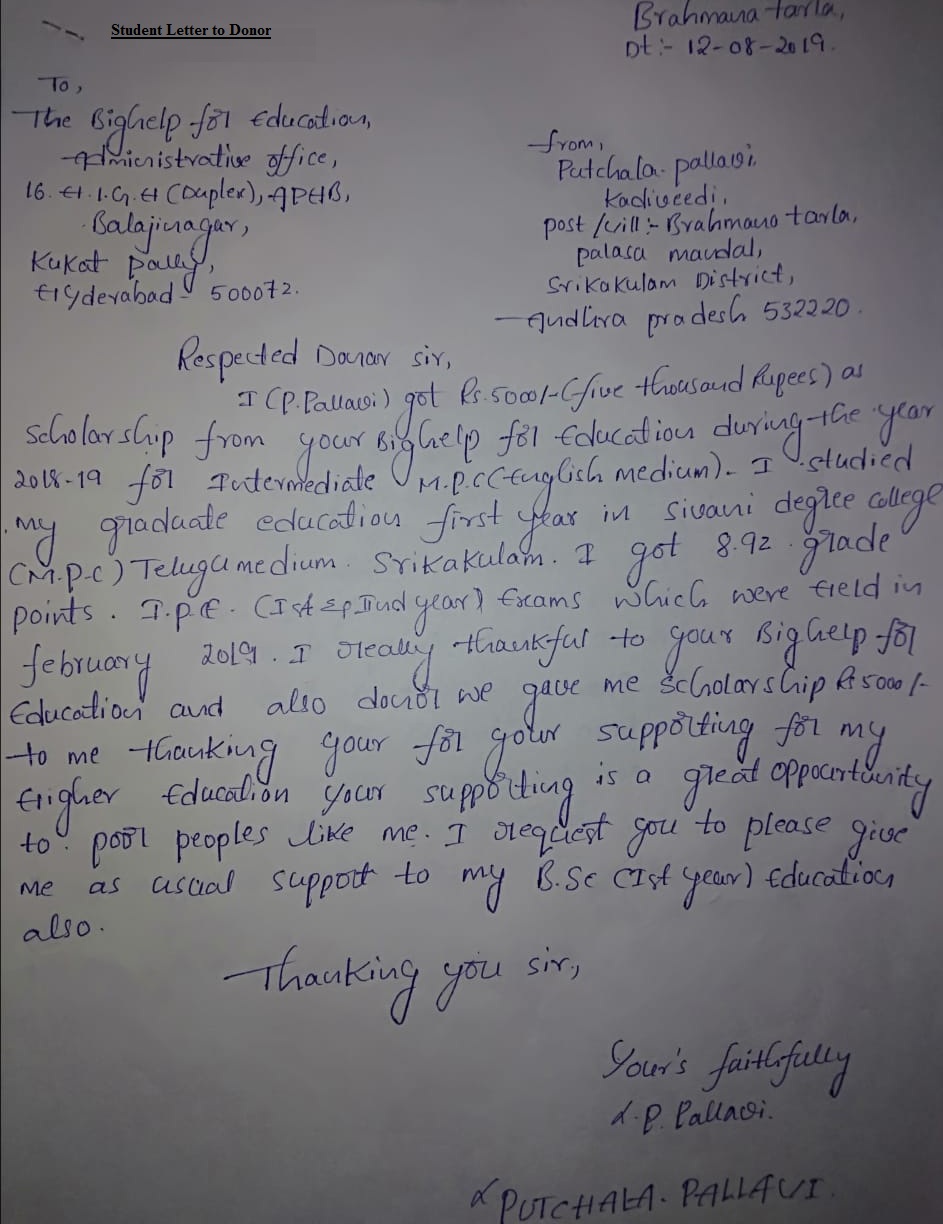 Student Letter to Donor
Brahmana tarla,
Dt:- 12-08-2019.
To,
The Bighelp for Education,
Administrative office,
16. H.I.G.H (Duplex), APHB,
Balajinagar,
Kukat pally,
Hyderabad - 500072.
from,
Putchala. pallavi
Kadiveedi,
post /vill :- Brahmana tarla,
palasa mandal,
Srikakulam District,
Andhra pradesh 532220.
Respected Donar sir,
I (P.Pallavi) got Rs.5000/-(five thousand Rupees) as
Scholarship from your Bighelp for Education during the year
2018-19 for Intermediate M.P.C(English medium)- I studied
my graduate education first year in Sivani degree college
(M.p.c) Telugu medium. Srikakulam. I got 8.92 grade
points. I.p.E. (Ist & IInd year) Exams which were Held in
february 2019. I really thankful to your Big help for
Education and also donor we gave me Scholarship Rs 5000/-
to me thanking your for your supporting for my
Higher Education your supporting is a great oppourtunity
to poor peoples like me. I request you to please give
me as usual support to my B.Sc (Ist year) Education
also.
Thanking you sir,
Your's faithfully
P. Pallavi.
PUTCHALA. PALLAVI.